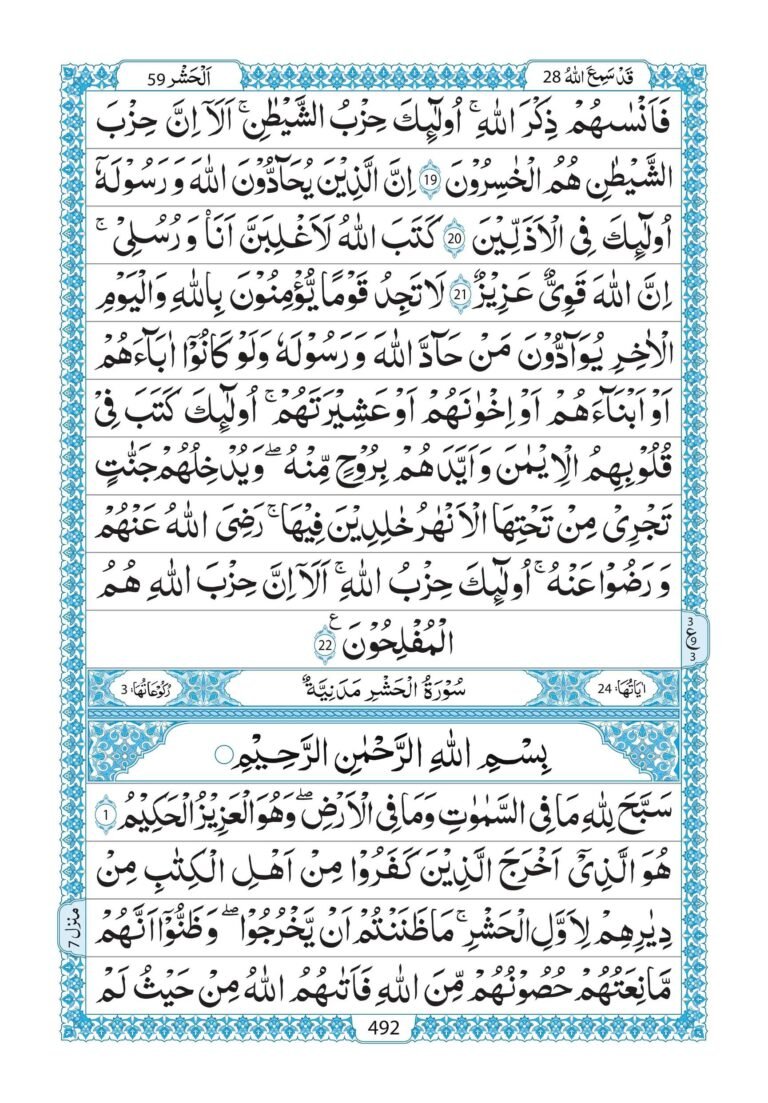 قَدْ سَمِعَ اللّٰهُ 28
اَلْحَشْر 59
فَاَنْسٰىهُمْ ذِكْرَ اللّٰهِ ؕ اُولٰٓئِكَ حِزْبُ الشَّيْطٰنِ ؕ اَلَاۤ اِنَّ حِزْبَ
الشَّيْطٰنِ هُمُ الْخٰسِرُوْنَ 19 اِنَّ الَّذِيْنَ يُحَآدُّوْنَ اللّٰهَ وَ رَسُوْلَهٗۤ
اُولٰٓئِكَ فِى الْاَذَلِّيْنَ 20 كَتَبَ اللّٰهُ لَاَغْلِبَنَّ اَنَا۠ وَ رُسُلِىْ ؕ
اِنَّ اللّٰهَ قَوِىٌّ عَزِيْزٌ 21 لَا تَجِدُ قَوْمًا يُّؤْمِنُوْنَ بِاللّٰهِ وَالْيَوْمِ
الْاٰخِرِ يُوَآدُّوْنَ مَنْ حَآدَّ اللّٰهَ وَ رَسُوْلَهٗ وَلَوْ كَانُوْۤا اٰبَآءَهُمْ
اَوْ اَبْنَآءَهُمْ اَوْ اِخْوٰنَهُمْ اَوْ عَشِيْرَتَهُمْ ؕ اُولٰٓئِكَ كَتَبَ فِىْ
قُلُوْبِهِمُ الْاِيْمٰنَ وَاَيَّدَهُمْ بِرُوْحٍ مِّنْهُ ؖ وَيُدْخِلُهُمْ جَنّٰتٍ
تَجْرِىْ مِنْ تَحْتِهَا الْاَنْهٰرُ خٰلِدِيْنَ فِيْهَا ؕ رَضِىَ اللّٰهُ عَنْهُمْ
وَ رَضُوْا عَنْهُ ؕ اُولٰٓئِكَ حِزْبُ اللّٰهِ ؕ اَلَاۤ اِنَّ حِزْبَ اللّٰهِ هُمُ
الْمُفْلِحُوْنَ ع 22
3 ع 9 3
اٰيَاتُهَا: 24
سُوْرَةُ الْحَشْرِ مَدَنِيَّةٌ
رُكُوْعَاتُهَا: 3
بِسْمِ اللّٰهِ الرَّحْمٰنِ الرَّحِيْمِ
سَبَّحَ لِلّٰهِ مَا فِى السَّمٰوٰتِ وَمَا فِى الْاَرْضِ ۖ وَهُوَ الْعَزِيْزُ الْحَكِيْمُ 1
هُوَ الَّذِىْۤ اَخْرَجَ الَّذِيْنَ كَفَرُوْا مِنْ اَهْلِ الْكِتٰبِ مِنْ
دِيٰرِهِمْ لِاَوَّلِ الْحَشْرِ ؕ مَا ظَنَنْتُمْ اَنْ يَّخْرُجُوْا ۖ وَظَنُّوْۤا اَنَّهُمْ
مَّانِعَتُهُمْ حُصُوْنُهُمْ مِّنَ اللّٰهِ فَاَتٰىهُمُ اللّٰهُ مِنْ حَيْثُ لَمْ
منزل 7
492